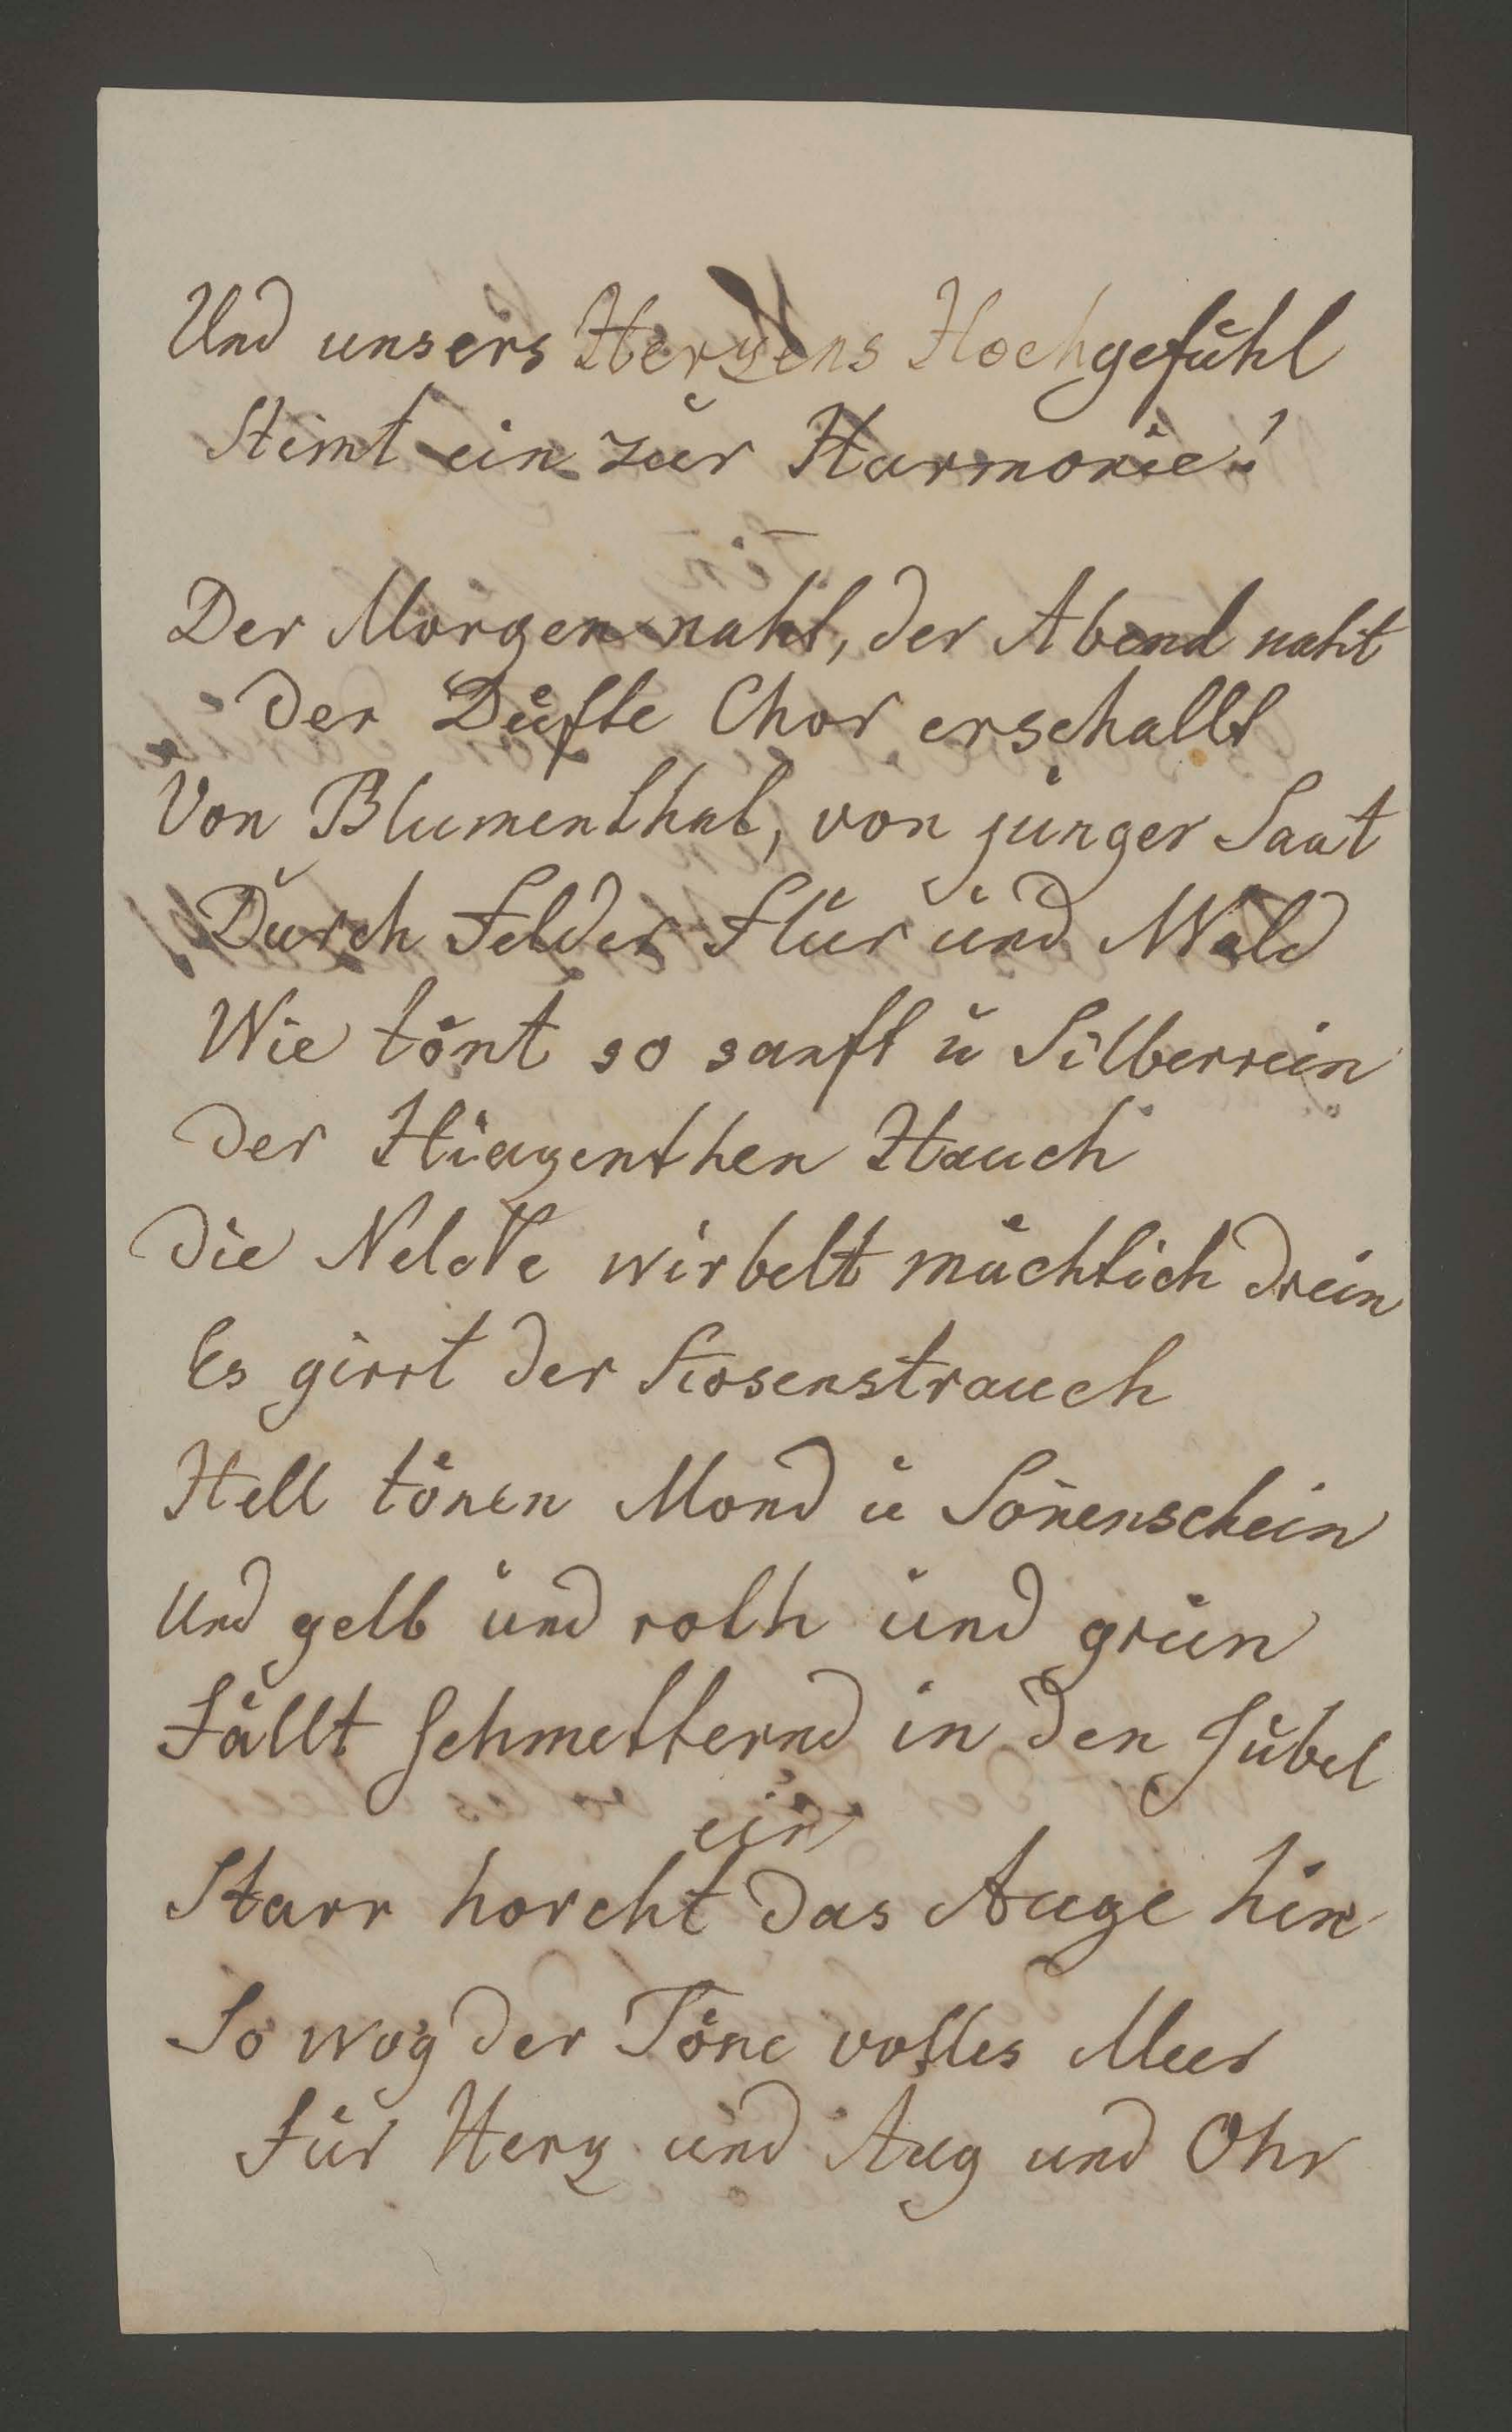 Und unsers Herzens Hochgefühl
Stimt ein zur Harmonie!
Der Morgen naht, der Abend naht
der Düfte Chor erschallt
Von Blumenthal, von junger Saat
Durch Felder Flur und Wald
Wie tönt so sanft u Silberrein
der Hiazenthen Hauch
die Nelcke wirbelt mächtich drein
Es girrt der Rosenstrauch
Hell tönen Mond u Son̄enschein
Und gelb und roth und grün
Fällt schmetternd in den Jubel
ein
Starr horcht das Auge hin
So wog der Töne volles Meer
Für Herz und Aug und Ohr